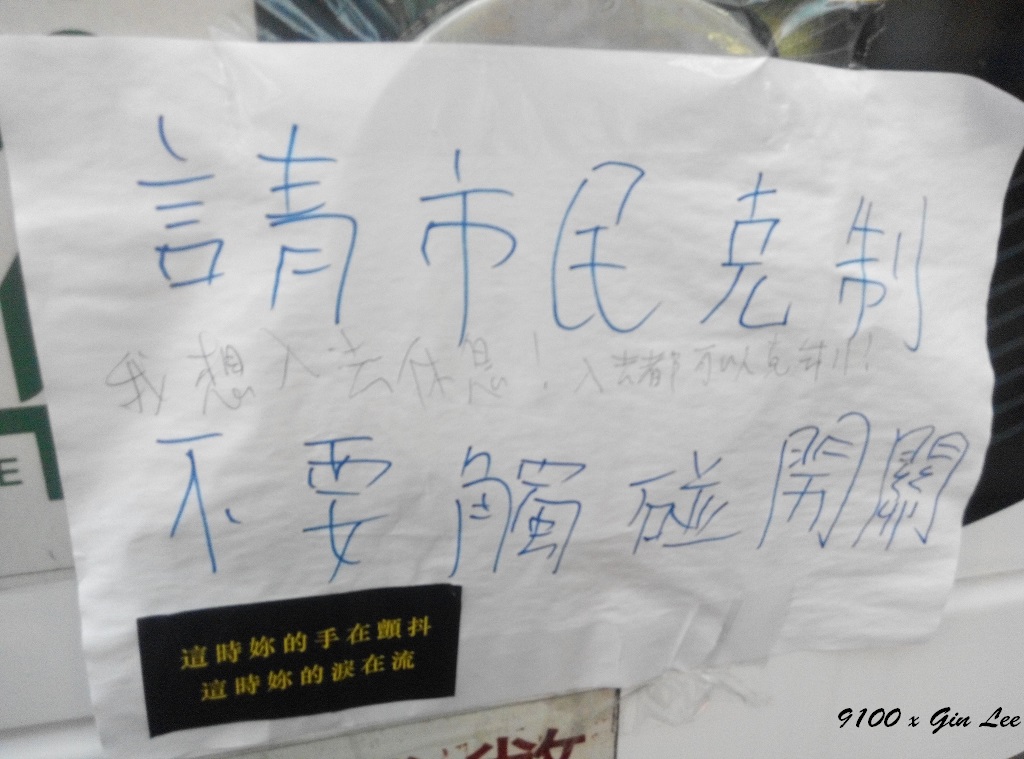 請市民克制
我想入去休息！入去都可以克制！
不要觸碰開關
這時妳的手在顫抖
這時妳的淚在流
E
9100 x Gin Lee